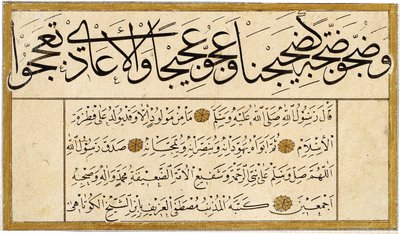 وضجوا ضجة كضجيجنا وعجوا عجيجا والاعادي تعججوا
قال رسول الله صلى الله عليه وسلم ما من مولود الا وقد يولد على فطرة
الاسلام ثم ابواه يهودانه وينصرانه ويمجسانه صدق رسول الله
اللهم صل وسلم على نبي الرحمة وشفيع الامة الضعيفة محمد وآله وصحبه
اجمعين كتبه المذنب مصطفى العريف بابن الشيخ